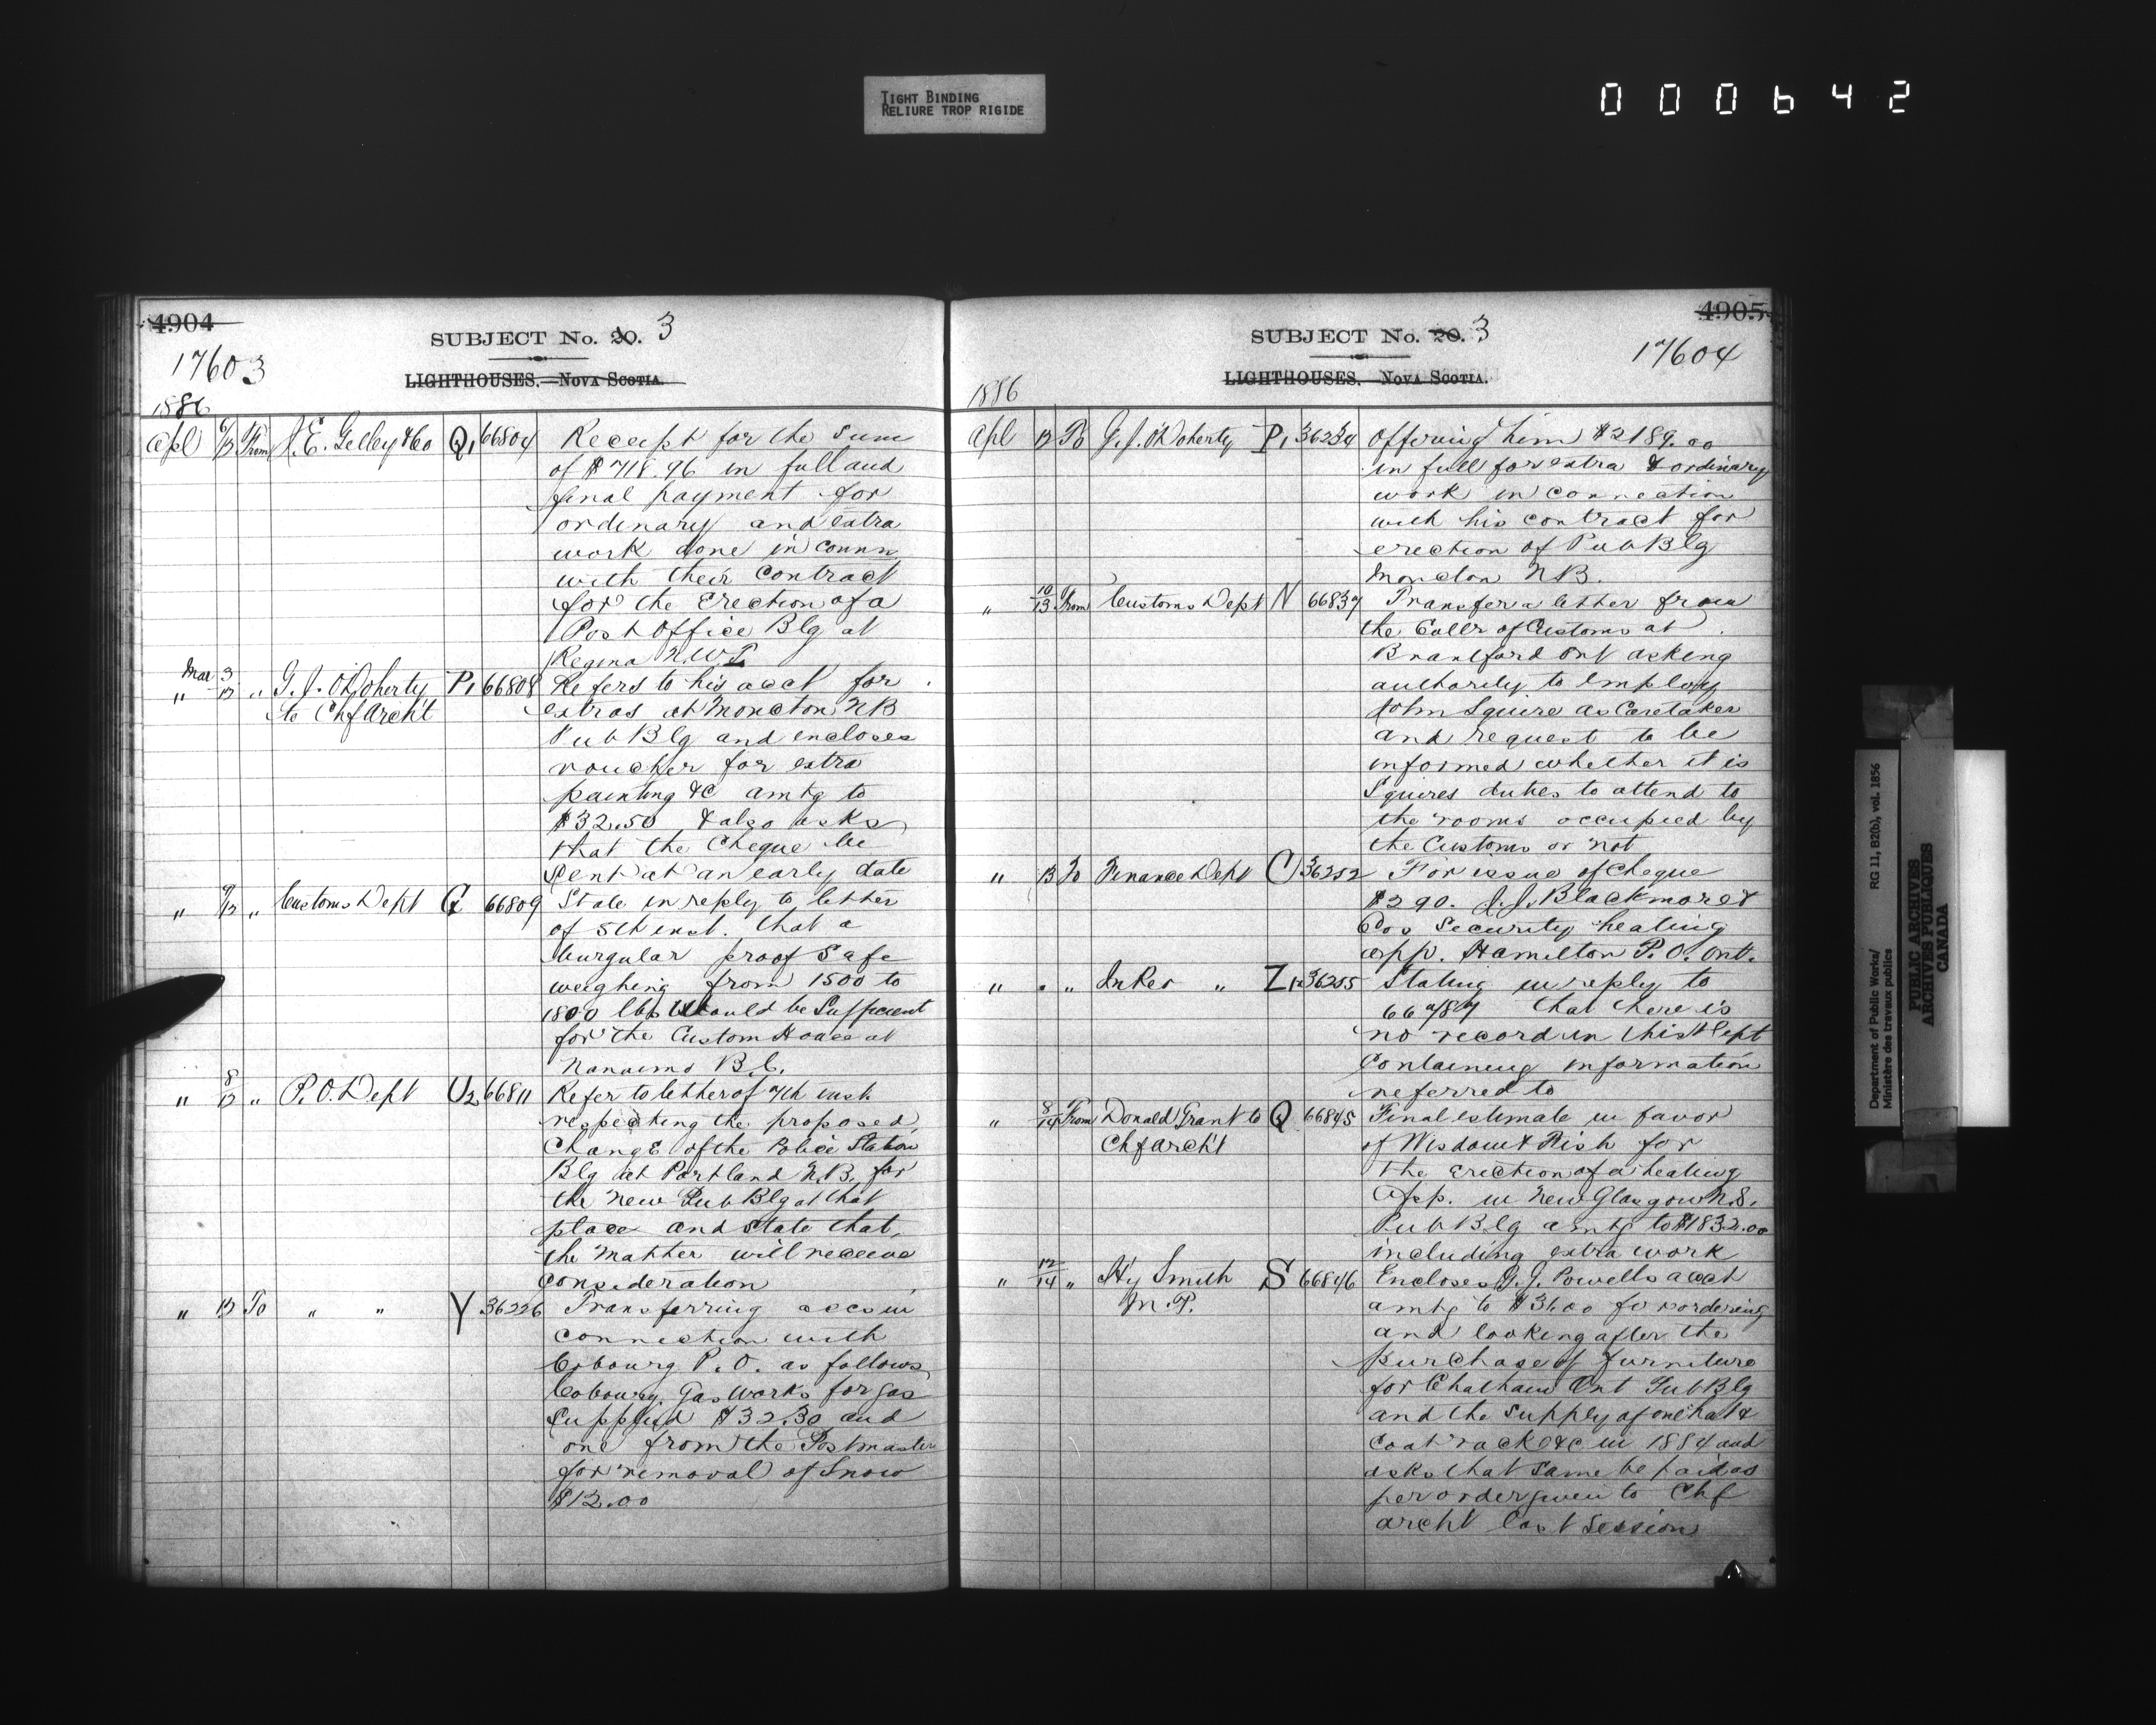 TIGHT BINDING
RELIURE TROP RIGIDE
000642
4904
SUBJECT No. 20. 3
17603
LIGHTHOUSES.—NOVA SCOTIA.
1886
Apl 6/12 From J. E. Gelley & Co Q1 66804 Receipt for the Sum
of $718.96 in full and
final payment for
ordinary and extra
work done in connn
with their Contract
for the Erection of a
Post Office Blg at
Regina N.W.T.
Mar 3
" 12 " G. J. O'Doherty P1 66808 Refers to his acct for
to Chf Arch't extras at Moncton NB
Pub Blg and encloses
voucher for extra
painting &c amtg to
$32.50 & also asks
that the Cheque be
Sent at an early date
" 9/12 " Customs Dept G 66809 State in reply to letter
of 5th inst. that a
burgular proof Safe
weighing from 1500 to
1800 lbs would be Sufficient
for the Custom House at
Nanaimo B.C.
" 8/12 " P.O. Dept U2 66811 Refer to letter of 7th inst.
respecting the proposed
Change of the Police Station
Blg at Portland N.B. for
the New Pub Blg at that
place and State that
the Matter will receive
Consideration
" 12 To " " Y 36226 Transferring accs in
connection with
Cobourg P.O. as follows
Cobourg Gas Works for gas
Supplied $32.30 and
one from the Postmaster
for removal of Snow
$12.00
4905
SUBJECT No. 20. 3
17604
LIGHTHOUSES. NOVA SCOTIA.
1886
Apl 12 To G. J. O'Doherty P1 36234 Offering him $2189.00
in full for extra & ordinary
work in connection
with his contract for
erection of Pub Blg
Moncton NB.
" 10/13 From Customs Dept N 66837 Transfer a letter from
the Collr of Customs at
Brantford Ont asking
authority to Employ
John Squire as Caretaker
and request to be
informed whether it is
Squires duties to attend to
the rooms occupied by
the Customs or not
" 13 To Finance Dept C 36252 For issue of Cheque
$290. J. J. Blackmore &
Cos Security heating
app. Hamilton P.O. Ont.
" " " In Rev " Z1 36255 Stating in reply to
that there is
no record in this Dept
Containing information
referred to
" 8/14 From Donald Grant to Q 66845 Final estimate in favor
Chf arch't of Wisdom & Fish for
the Erection of a heating
App. in New Glasgow N.S.
Pub Blg amtg to $1832.00
including extra work
" 12/14 " Hy Smith S 66846 Encloses G. J. Powells acct
M.P. amtg to $31.00 for ordering
and looking after the
purchase of furniture
for Chatham Ont Pub Blg
and the Supply of one hat &
Coat rack &c in 1884 and
asks that same be paid as
per order given to Chf
archt last Session
Department of Public Works/
Ministère des travaux publics
RG 11, B2(b), vol. 1856
PUBLIC ARCHIVES
ARCHIVES PUBLIQUES
CANADA